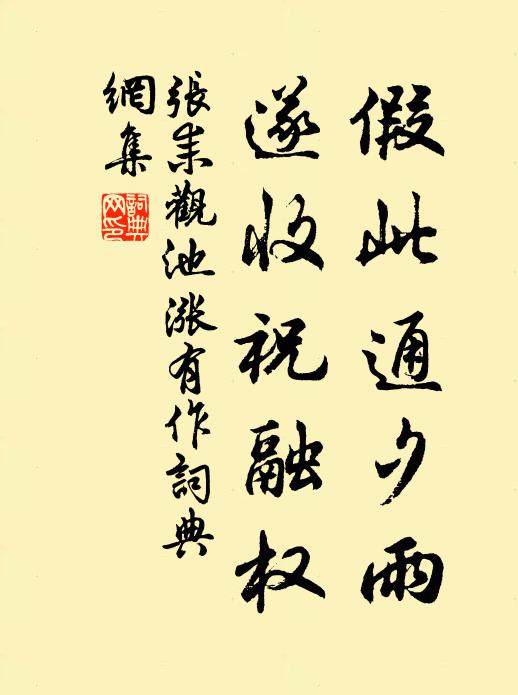 假此通夕雨
遂收祝融权
張耒觀池漲有作詞典
網集
詞典
网印